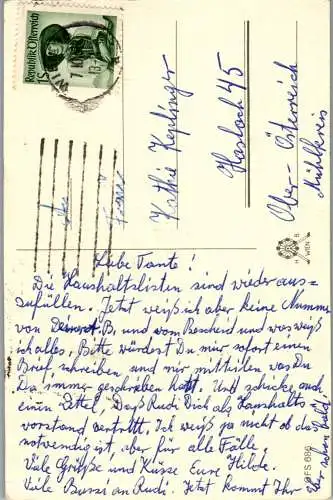 Republik Österreich
1S
WIEN
Frau
Kathie Keplinger
Hasloch 45
Ober-Österreich
Mühlkreis
H B
WIEN
Liebe Tante!
Die Haushaltslisten sind wieder aus-
zufüllen. Jetzt weiß ich aber keine Nummer
von Deinem B. und vom Bescheid und was weiß
ich alles. Bitte würdest Du mir sofort einen
Brief schreiben und mir mitteilen was Du
Da immer geschrieben hast. Und schicke auch
einen Zettel, Daß Rudi Dich als Haushalts
vorstand vertritt. Ich weiß ja nicht ob das
notwendig ist, aber für alle Fälle.
Viele Grüße und Küsse Eure Hilde.
Viele Bussi an Rudi. Jetzt kommt Ihr
schon bald
PFS 686